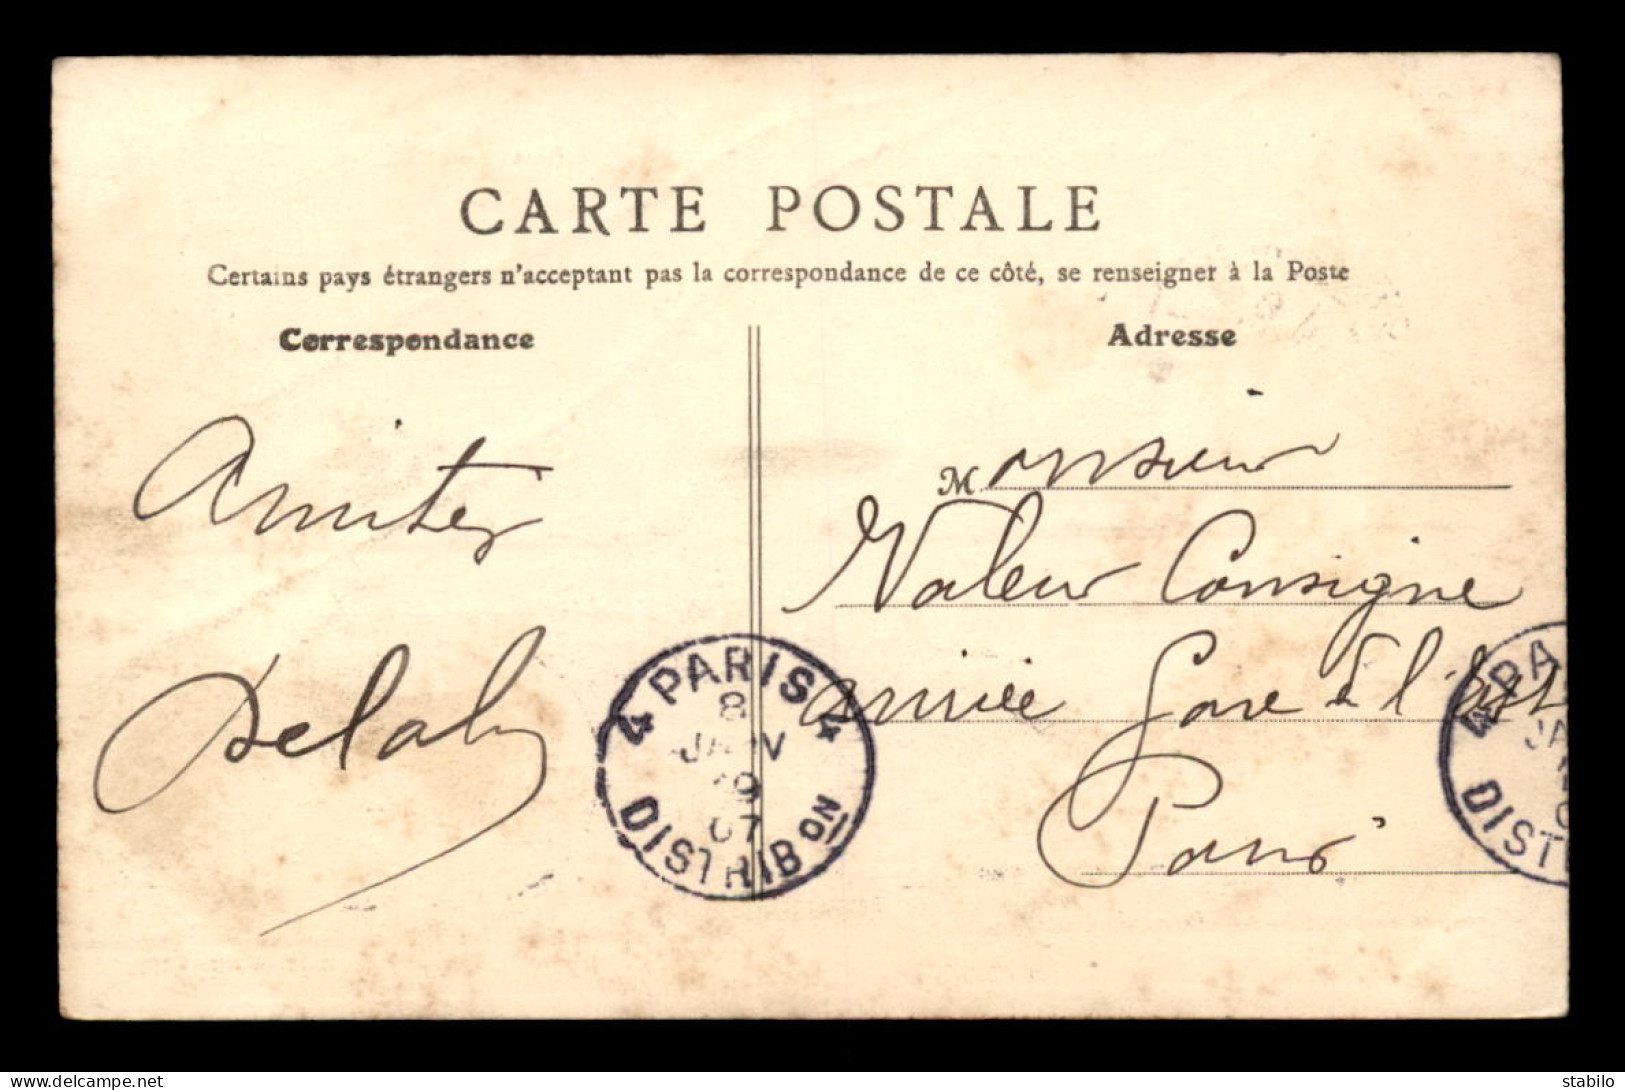 CARTE POSTALE
Certains pays étrangers n'acceptant pas la correspondance de ce côté, se renseigner à la Poste
Correspondance
Adresse
Amitiés
Monsieur
Valeur Consigne
arrivée Gare de l'Est
Paris
4 PARIS 4
8
JANV
07
DISTRIB ON
4 PA
DIST
delcampe.net
stabilo